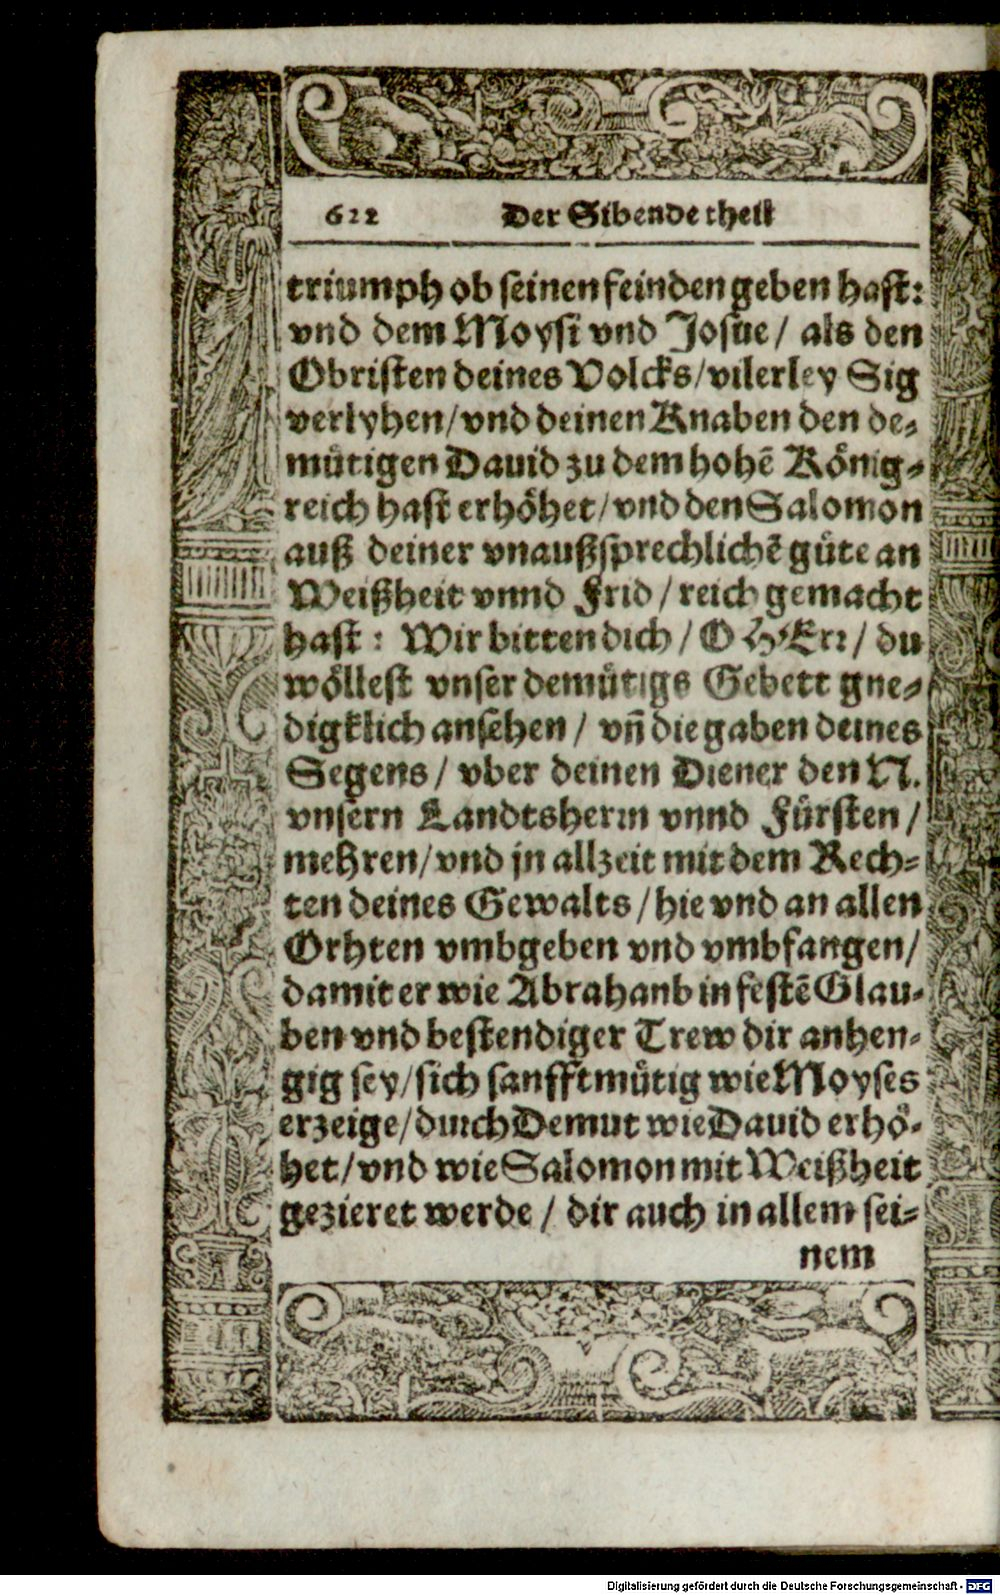 622 Der Sibende theil
triumph ob seinen feinden geben hast:
vnd dem Moysi vnd Josue / als den
Obristen deines Volcks / vilerley Sig
verlyhen / vnd deinen Knaben den de-
mütigen Dauid zu dem hohē König-
reich hast erhöhet / vnd den Salomon
auß deiner vnaußsprechlichē güte an
Weißheit vnnd Frid / reich gemacht
hast: Wir bitten dich / O HErr / du
wöllest vnser demütigs Gebett gne-
digklich ansehen / vñ die gaben deines
Segens / vber deinen Diener den N.
vnsern Landtsherrn vnnd Fürsten /
mehren / vnd jn allzeit mit dem Rech-
ten deines Gewalts / hie vnd an allen
Orhten vmbgeben vnd vmbfangen /
damit er wie Abrahanb in festē Glau-
ben vnd bestendiger Trew dir anhen-
gig sey / sich sanfftmütig wie Moyses
erzeige / durch Demut wie Dauid erhö-
het / vnd wie Salomon mit Weißheit
gezieret werde / dir auch in allem sei-
nem
Digitalisierung gefördert durch die Deutsche Forschungsgemeinschaft - DFG